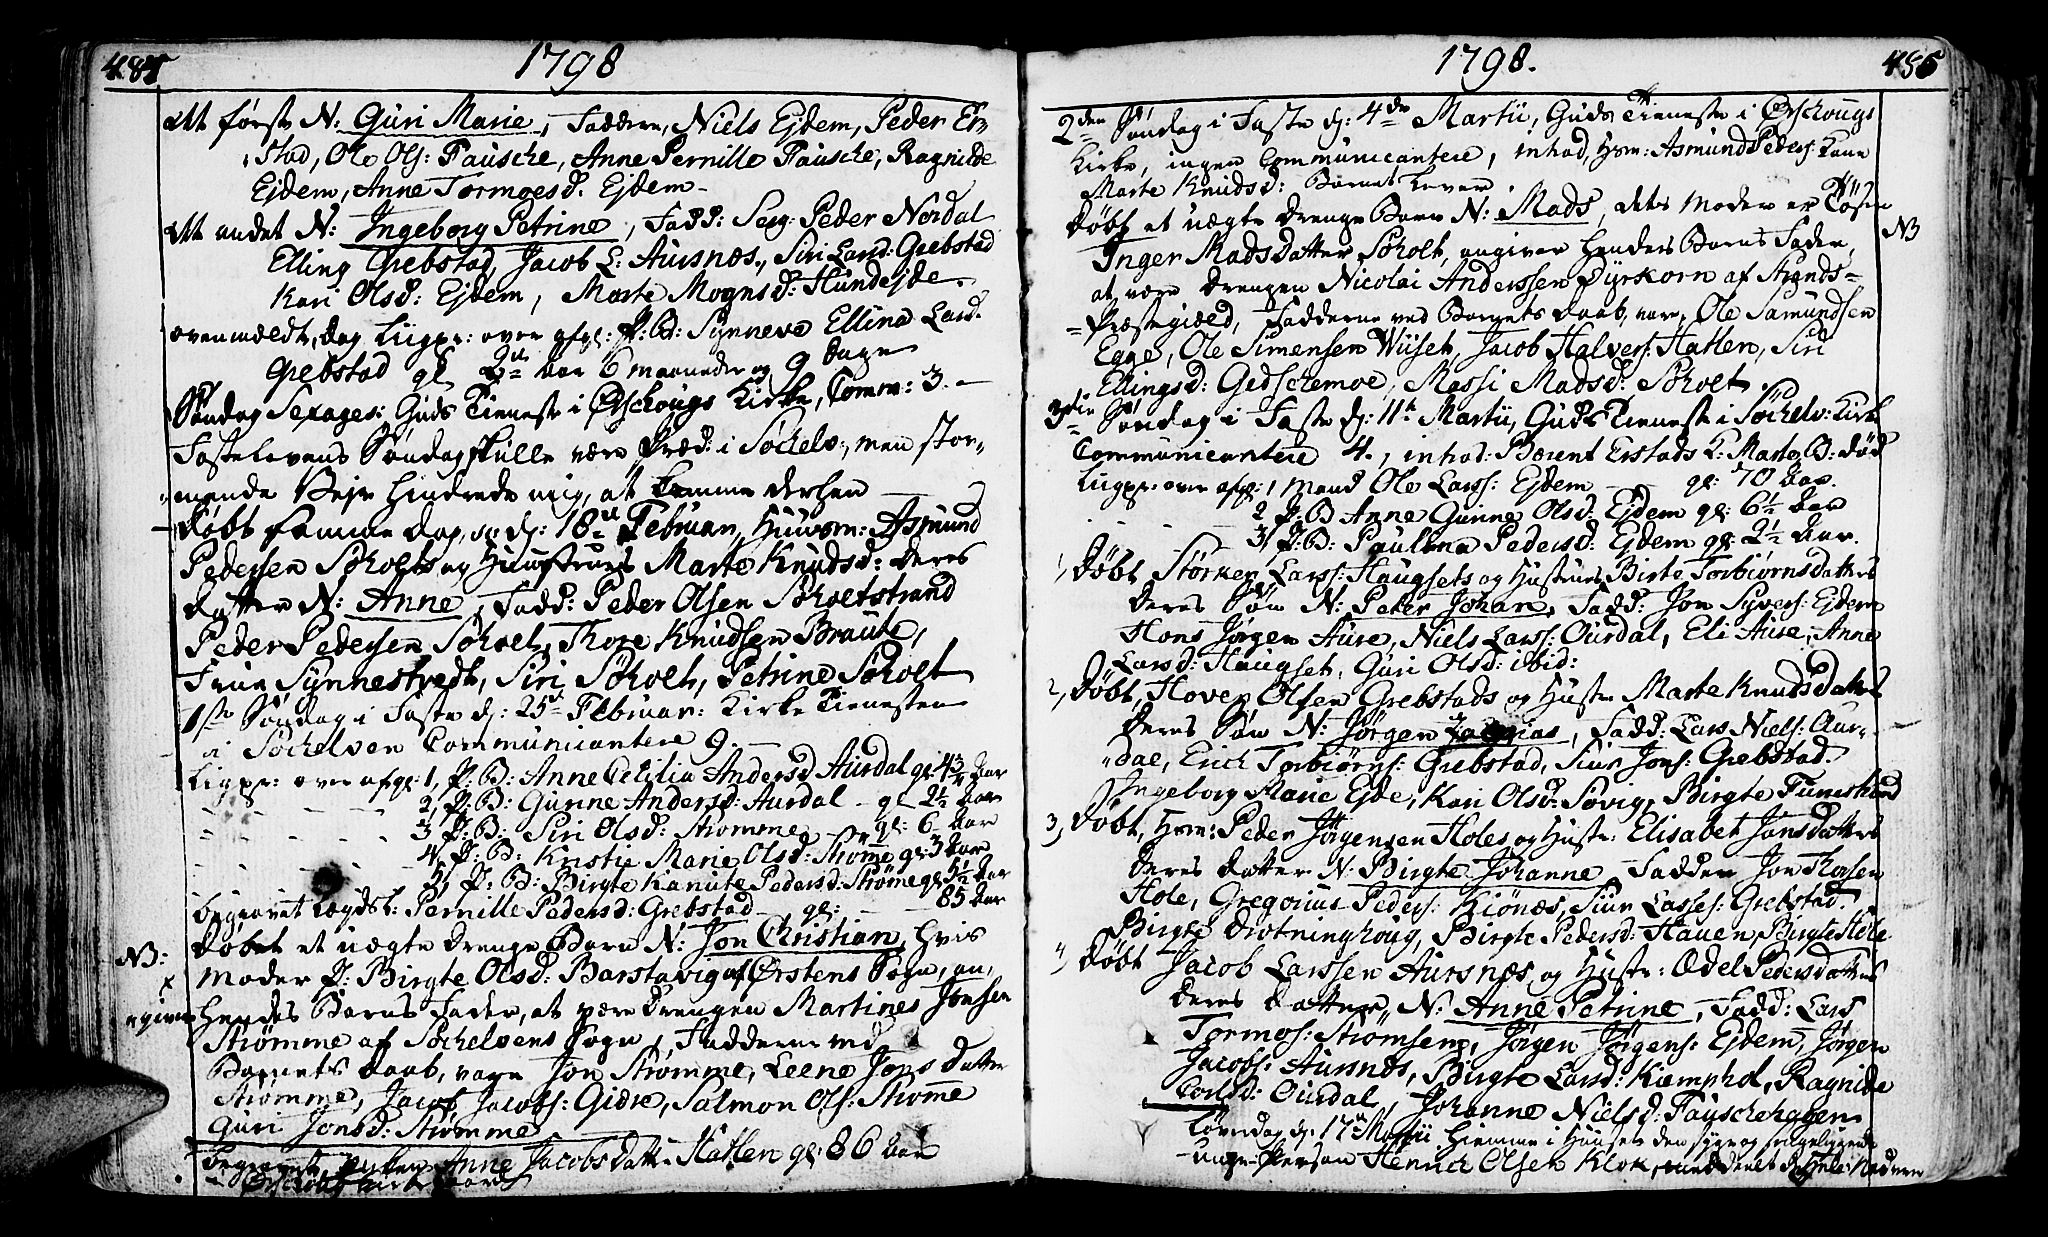 484
1798
det første N: Guri Marie, Faddere, Niels Ejdem, Peder Er-
stad, Ole Ols: Fausche, Anne Pernille Fausche, Ragnilde
Ejdem, Anne Tormoesd: Ejdem.
det andet N: Ingeborg Petrine, Fadd: Serg: Peder Nordal
Elling Grebstad, Jacob L: Aursnæs, Siri Larsd: Grebstad
Kari Olsd: Ejdem, Marte Mognsd: Hundejde.
ovenmeldte dag Liigpr: over afgl: P: B: Synneva Ellina Larsd.
Grebstad gl 2 Aar 6 maaneder og 9 dage
Søndag Sexages: Guds Tieneste i Ørschougs Kirke, Comm: 3. –
Fastelavens Søndag skulle være Præd: i Søchelv:, men stor-
mende Vejr hindrede mig, at komme derhen
Døbt samme dag, : d: 18de Februar, Huusm: Asmund
Pedersen Søholts og Huustrues Marte Knudsd: deres
datter N: Anne, Fadd: Peder Olsen Søholtstrand
Peder Pedersen Søholt, Thore Knudsen Braute,
Frue Synnestvedt, Siri Søholt, Petrine Søholt
1ste Søndag i Faste d: 25de Februar: Kirke Tienesten
i Søchelven Communicantere 9
Ligpr: over afgl: 1, P: B: Anne Cecilia Andersd Aurdal gl: 4 3/4 Aar
2, P: B: Gunne Andersd: Aurdal gl 2 1/2 Aar
3 P: B: Siri Olsd: Strømme gl: 6 Aar
4 P: B: Kristie Marie Olsd: Strøme gl 3 Aar
5, P: B: Birgte Kanute Pedersd: Strøme gl 5 1/2 Aar
begravet Lægdsl: Pernille Pedersd: Grebstad gl: 85 Aar
NB: Døbet et uægte drenge Barn N: Jon Christian, hvis
Moder P: Birgte Olsd: Barstavig af Ørstens Sogn, an-
x givne hendes Barns Fader, at være drengen Martines Jonsen
Strømme af Søchelvens Sogn, Fadderne ved
Barnets daab, vare Jon Strømme, Leene Jons datter
Strømme, Jacob Jacobs: Gidre, Salmon Ols: Strøme
Guri Jonsd: Strømme
begravet Enken Anne Jacobsdatter Hatlen gl: 86 Aar
Ørschoug kirkegaard
485
1798.
2den Søndag i Faste d: 4de Martii, Guds Tieneste i Ørschougs
Kirke, ingen Communicantere, inthod. Hsm: Asmund Peders: Kone
Marte Knudsd: Barnet Lever
NB
Døbt et uægte drenge Barn N: Mads, dets Moder er Tøsen
Inger Madsdatter Søholt, angiver hendes Barns Fader,
at være drengen Nicolai Anderssen Dyrkorn af Strands-
Præstegield, Fadderne ved Barnets daab, vare, Ole Samundsen
Egge, Ole Simensen Wiiset, Jacob Halvers: Hatlen, Siri
Ellingsd: Gedschemoe, Massi Madsd: Søholt.
3die Søndag i Faste d: 11te Martii, Guds Tieneste i Søchelv: Kirke
Communicantere 4., inthod: Bærent Erstads K: Marte, B: død
Liigpr: over afgl: 1 Mand Ole Larss: Ejdem gl: 70 Aar.
2 P: B Anne Gunne Olsd: Ejdem gl: 6 1/2 Aar
3, P: B: Paulina Pedersd: Ejdem gl: 2 1/2 Aar.
1, Døbt Størker Larss: Haugsets og Hustrues Birte Torbiørnsdatters
deres Søn N: Peter Johan, Fadd: Jon Syvers: Ejdem
Hans Jørgen Aure, Niels Larss: Ourdal, Eli Aure, Anne
Larsd: Haugset, Guri Olsd: ibid:
2, Døbt, Hoven Olsen Grebstads og Hustr: Marte Knudsdatters
deres Søn N: Jørgen Zacrias, Fadd: Lars Niels: Aur-
dal, Erich Torbiørns: Grebstad, Siur Jons: Grebstad.
Ingeborg Marie Ejde, Kari Olsd: Søvig, Birgte Tuneshand
3, Døbt, Hsm: Peder Jørgensen Holes og Hustr: Elisabet Jonsdatters
deres datter N: Birgte Johanne Fadder Jon Thorsen
Hole, Gregorius Peders: Kiønæs, Siur Lasses: Grebstad.
Birgte Drotninghoug, Birgte Pedersd: Hauen, Birgte Hole
4, Døbt Jacob Larssen Aursnæs og Hustr: Ædel Pedersdatters
deres datter, N: Anne Petrine, Fadd: Lars
Tormos: Strømsem, Jørgen Jørgens: Ejdem, Jørgen
Jacobs: Aursnæs, Birgte Larsd: Kiemphol, Ragnilde
Carlsd: Ourdal, Johanne Nielsd: Fauschehagen
Løverdag d: 17de Martii hiemme i Huuset den syge og sengeliggende
unge Person Henrich Olsen Klok, meddeelt d: Hell: Nadvere